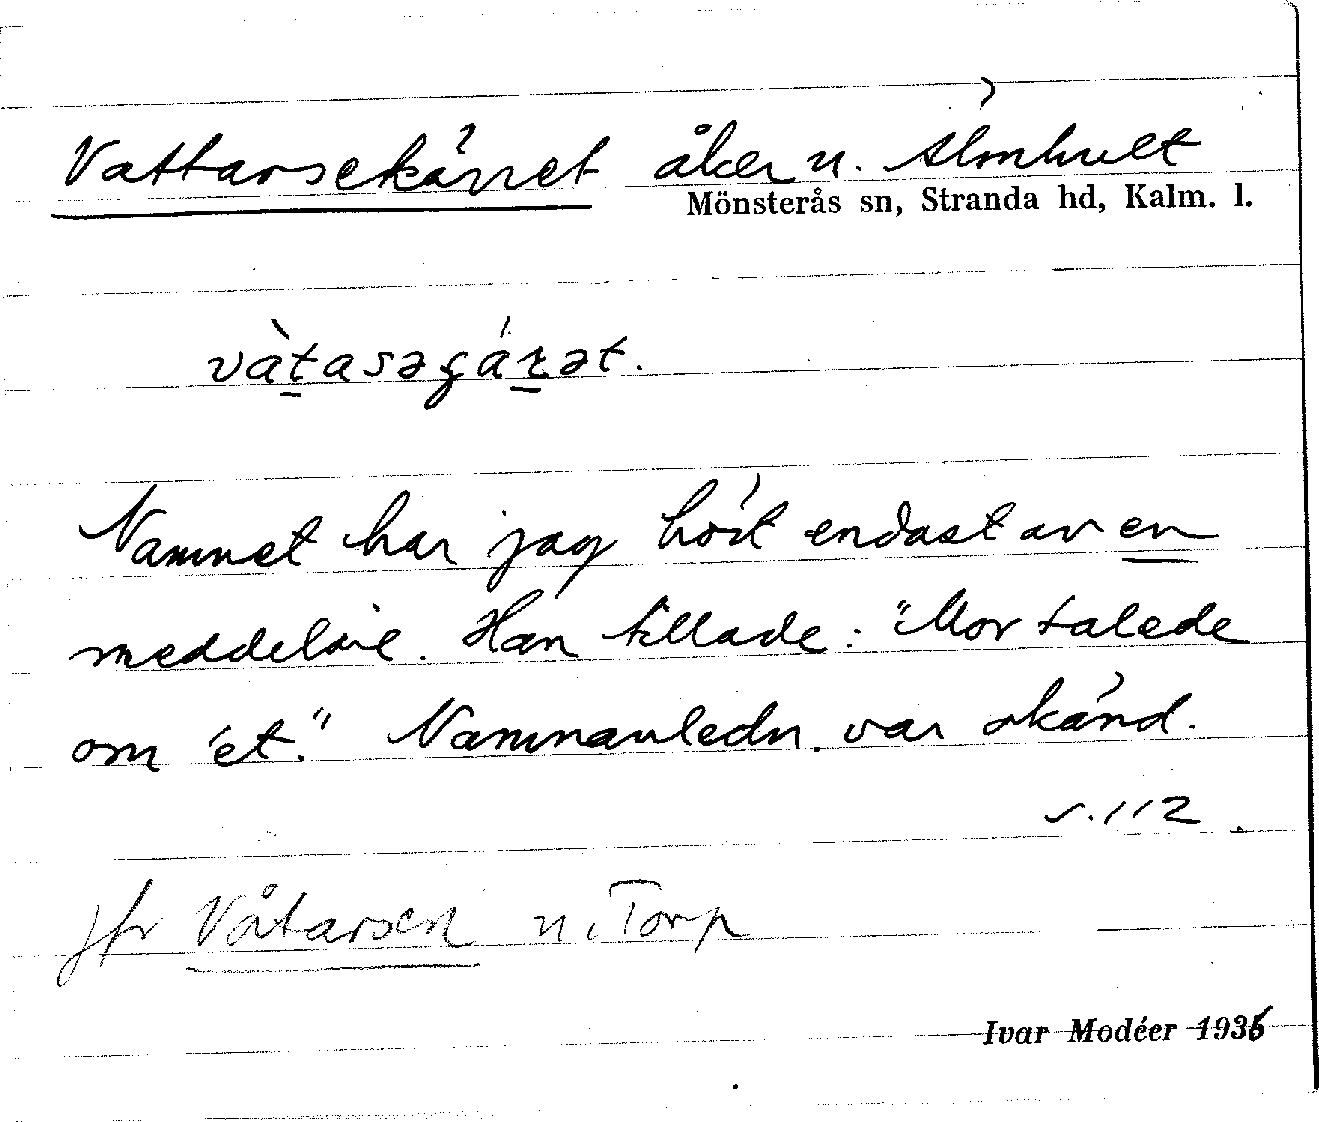 Vattarsekärret åker u. Älmhult
Mönsterås sn, Stranda hd, Kalm. l.
vàtasəgárət.
Namnet har jag hört endast av en
meddelare. Han tillade: "Mor talede
om 'et." Namnanledn. var okänd.
s. 112.
jfr Våtarsen u. Torp
Ivar Modéer 1936